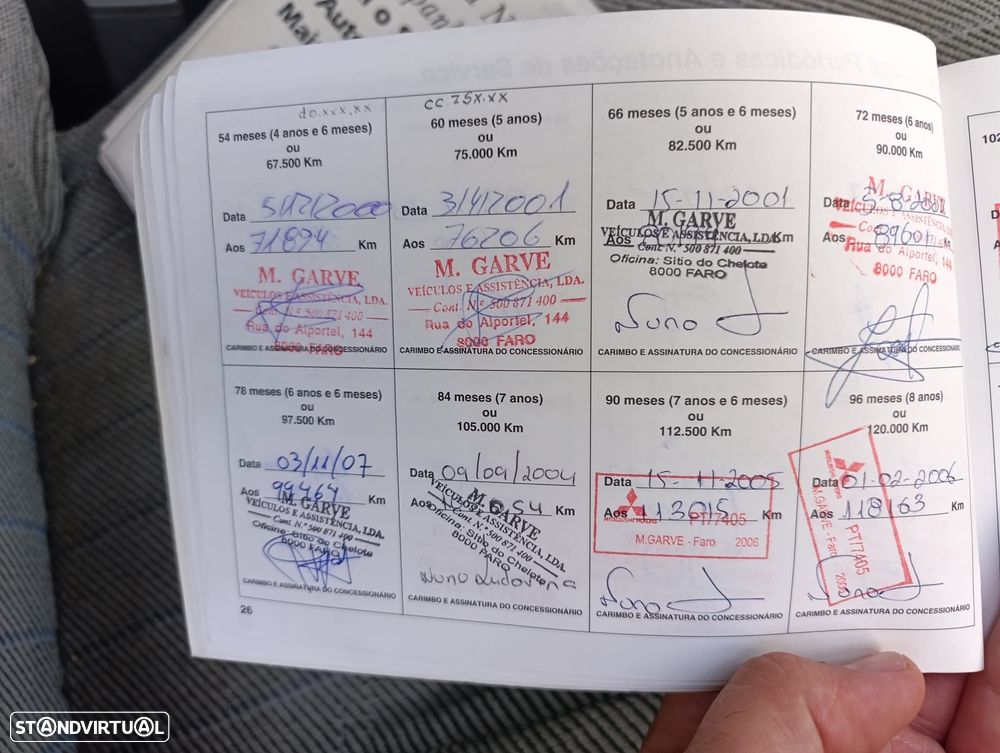 54 meses (4 anos e 6 meses)
ou
67.500 Km
Data 5/12/2000
Aos 71894 Km
M. GARVE
VEÍCULOS E ASSISTÊNCIA, LDA.
Cont. N.º 500 871 400
Rua do Alportel, 144
8000 FARO
CARIMBO E ASSINATURA DO CONCESSIONÁRIO
60 meses (5 anos)
ou
75.000 Km
Data 3/4/2001
Aos 76206 Km
M. GARVE
VEÍCULOS E ASSISTÊNCIA, LDA.
Cont. N.º 500 871 400
Rua do Alportel, 144
8000 FARO
CARIMBO E ASSINATURA DO CONCESSIONÁRIO
66 meses (5 anos e 6 meses)
ou
82.500 Km
Data 15-11-2001
Aos Km
M. GARVE
VEÍCULOS E ASSISTÊNCIA, LDA.
Cont. N.º 500 871 400
Oficina: Sitio do Chelote
8000 FARO
Nuno
CARIMBO E ASSINATURA DO CONCESSIONÁRIO
72 meses (6 anos)
ou
90.000 Km
Data
Aos Km
M. GARVE
VEÍCULOS E ASSISTÊNCIA
Rua do Alportel, 144
8000 FARO
CARIMBO E ASSINATURA DO CONCESSIONÁRIO
78 meses (6 anos e 6 meses)
ou
97.500 Km
Data 03/11/07
Aos 99464 Km
M. GARVE
VEÍCULOS E ASSISTÊNCIA, LDA.
Cont. N.º 500 871 400
Oficina: Sitio do Chelote
8000 FARO
CARIMBO E ASSINATURA DO CONCESSIONÁRIO
84 meses (7 anos)
ou
105.000 Km
Data 09/09/2004
Aos Km
M. GARVE
VEÍCULOS E ASSISTÊNCIA, LDA.
Cont. N.º 500 871 400
Oficina: Sitio do Chelote
8000 FARO
Nuno
CARIMBO E ASSINATURA DO CONCESSIONÁRIO
90 meses (7 anos e 6 meses)
ou
112.500 Km
Data 15-11-2005
Aos 113615 Km
PT/7405
M.GARVE - Faro 2006
Nuno
CARIMBO E ASSINATURA DO CONCESSIONÁRIO
96 meses (8 anos)
ou
120.000 Km
Data 01-02-2006
Aos 118163 Km
PT/7405
M.GARVE - Faro
CARIMBO E ASSINATURA DO CONCESSIONÁRIO
26
STANDVIRTUAL